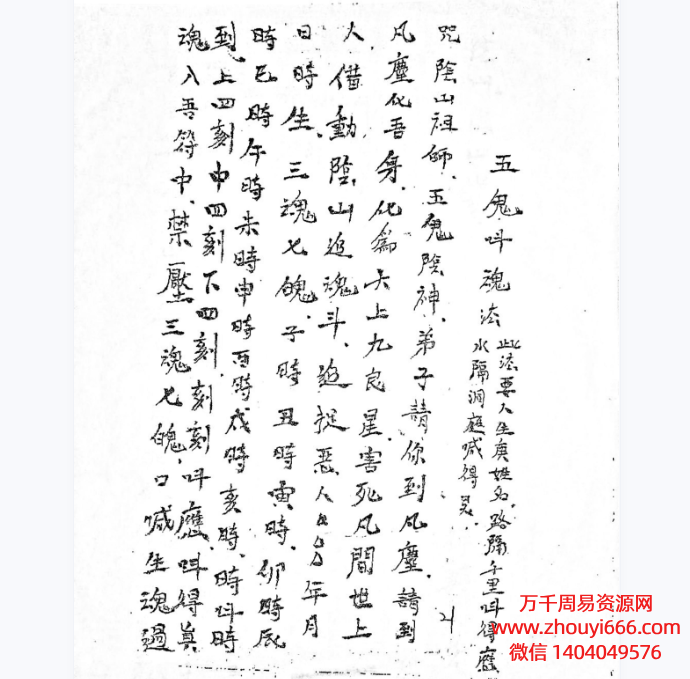 五鬼叫魂法
此法要人生庚姓名，路隔千里叫得應
水隔洞庭喊得灵
咒陰山祖師、五鬼陰神、弟子請你到凡塵、請到
凡塵化吾身、化為大上九良星、害死凡間世上
人、借動陰山追魂斗、追捉惡人年月
日時生、三魂七魄、子時丑時寅時、卯時辰
時巳時午時未時申時酉時戌時亥時、時叫時
到上四刻中四刻下四刻刻刻叫應、叫得真
魂入吾符中、禁壓三魂七魄、口喊生魂過
万千周易资源网
www.zhouyi666.com
微信 1404049576